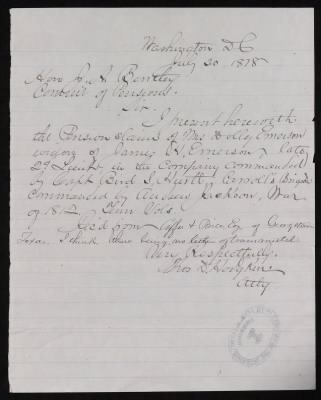 Washington D.C.
July 20, 1878
Hon. J. A. Bentley
Comr of Pensions.
Sir.
I present herewith
the Pension claim of Mrs Dolly Emerson
widow of James H. Emerson, late
2d Lieut in the Company commanded
by Capt Bird S. Hurtt, Carroll's Brigade
commanded by Andrew Jackson, War
of 1812. Tenn Vols.
Recd from Coffee & Price, of Georgetown
Texas. I think there being no letter of transmittal
Very Respectfully.
D. Hodgkin
Atty